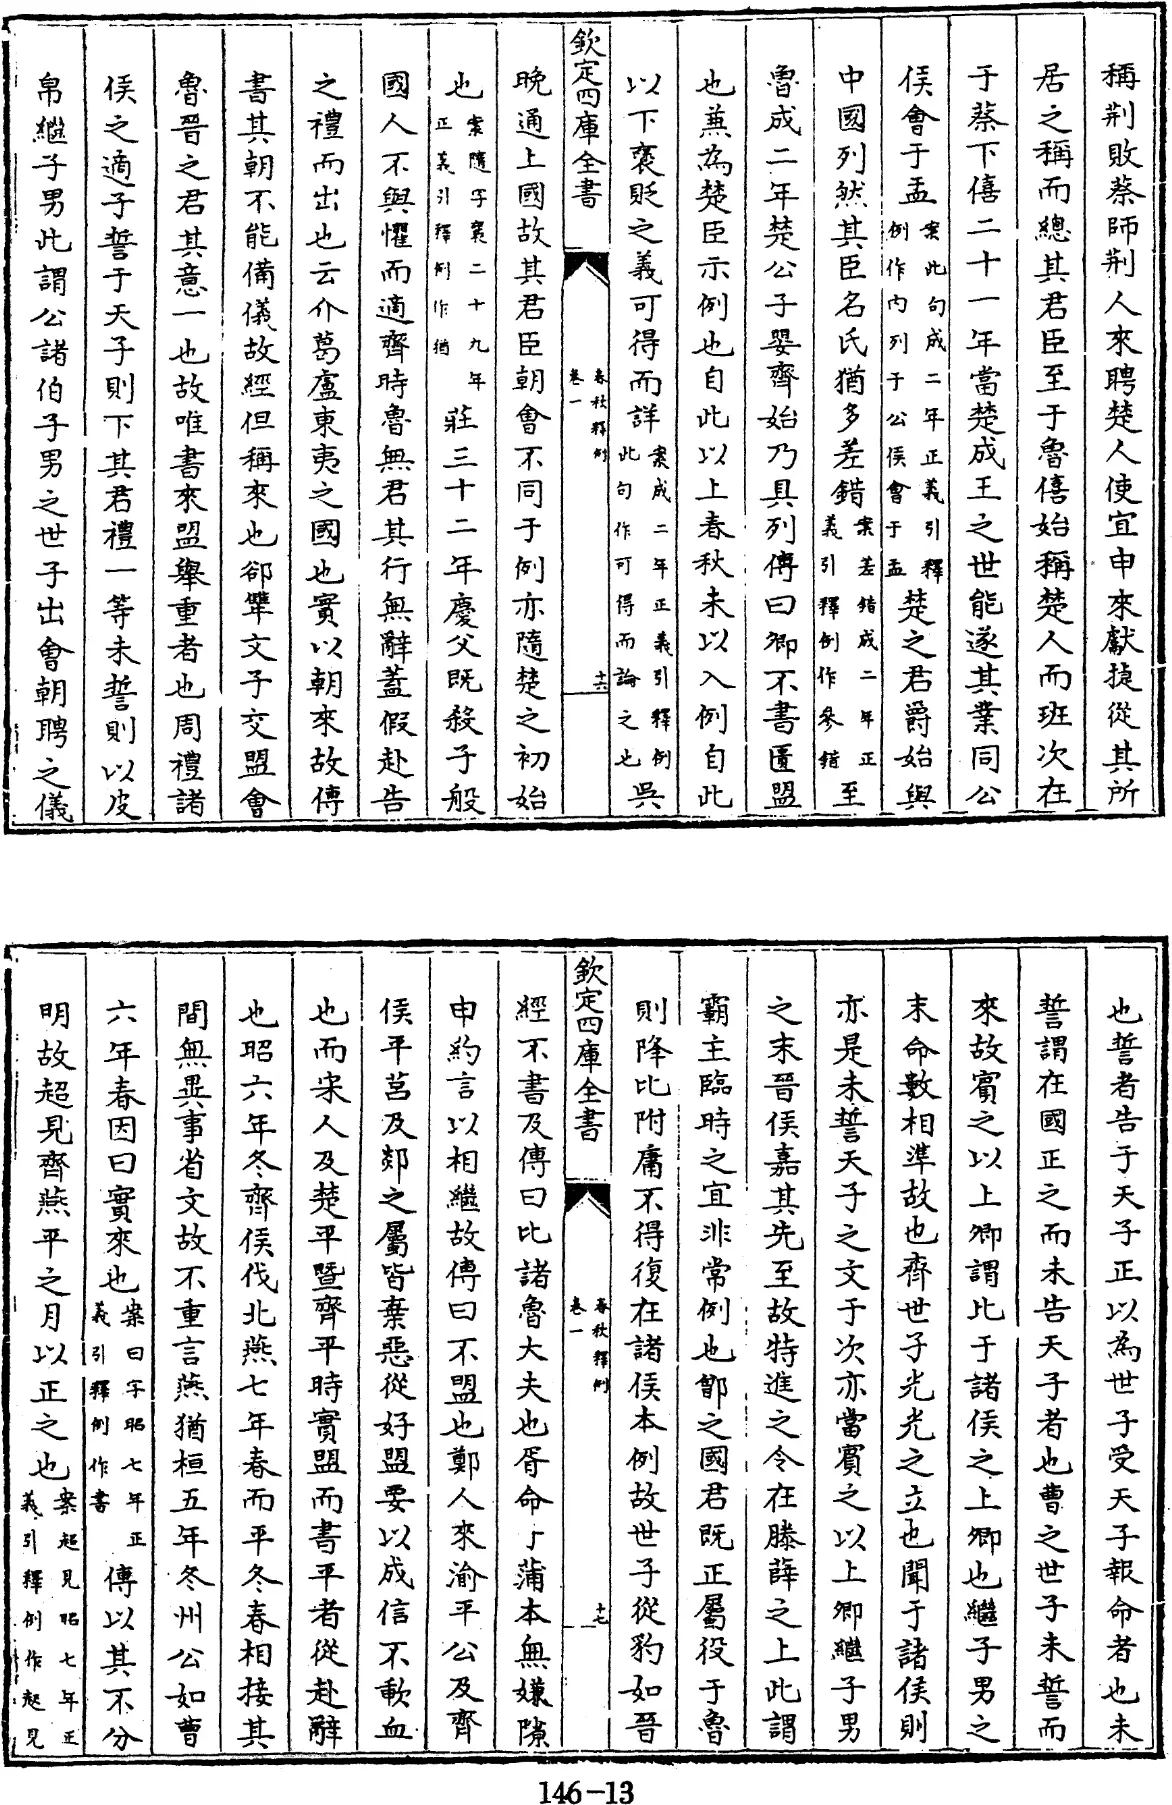 稱荆敗蔡師荆人來聘楚人使宜申來獻捷從其所
居之稱而總其君臣至于魯僖始稱楚人而班次在
于蔡下僖二十一年當楚成王之世能遂其業同公
侯會于盂案此句成二年正義引釋例作内列于公侯會于盂楚之君爵始與
中國列然其臣名氏猶多差錯案差錯成二年正義引釋例作參錯至
魯成二年楚公子嬰齊始乃具列傳曰卿不書匱盟
也兼為楚臣示例也自此以上春秋未以入例自此
以下褒貶之義可得而詳案成二年正義引釋例此句作可得而論之也吳
欽定四庫全書
春秋釋例
卷一
十六
晚通上國故其君臣朝會不同于例亦隨楚之初始
也案隨字襄二十九年正義引釋例作猶莊三十二年慶父既殺子般
國人不與懼而適齊時魯無君其行無辭蓋假赴告
之禮而出也云介葛盧東夷之國也實以朝來故傳
書其朝不能備儀故經但稱來也郤犨文子交盟會
魯晉之君其意一也故唯書來盟舉重者也周禮諸
侯之適子誓于天子則下其君禮一等未誓則以皮
帛繼子男此謂公諸伯子男之世子出會朝聘之儀
也誓者告于天子正以為世子受天子報命者也未
誓謂在國正之而未告天子者也曹之世子未誓而
來故賓之以上卿謂比于諸侯之上卿也繼子男之
末命數相準故也齊世子光光之立也聞于諸侯則
亦是未誓天子之文于次亦當賓之以上卿繼子男
之末晉侯嘉其先至故特進之令在滕薛之上此謂
霸主臨時之宜非常例也鄫之國君既正屬役于魯
則降比附庸不得復在諸侯本例故世子從豹如晉
欽定四庫全書
春秋釋例
卷一
十七
經不書及傳曰比諸魯大夫也胥命于蒲本無嫌隙
申約言以相繼故傳曰不盟也鄭人來渝平公及齊
侯平莒及郯之屬皆棄惡從好盟要以成信不歃血
也而宋人及楚平暨齊平時實盟而書平者從赴辭
也昭六年冬齊侯伐北燕七年春而平冬春相接其
間無異事省文故不重言燕猶桓五年冬州公如曹
六年春因曰實來也案曰字昭七年正義引釋例作書傳以其不分
明故超見齊燕平之月以正之也案超見昭七年正義引釋例作起見
146-13